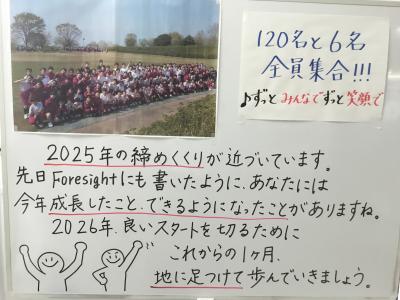 120名と6名
全員集合!!!
♪ずっとみんなでずっと笑顔で
2025年の締めくくりが近づいています。
先日Foresightにも書いたように、あなたには
今年成長したこと、できるようになったことがありますね。
2026年、良いスタートを切るために
これからの1ヶ月、
地に足つけて歩んでいきましょう。